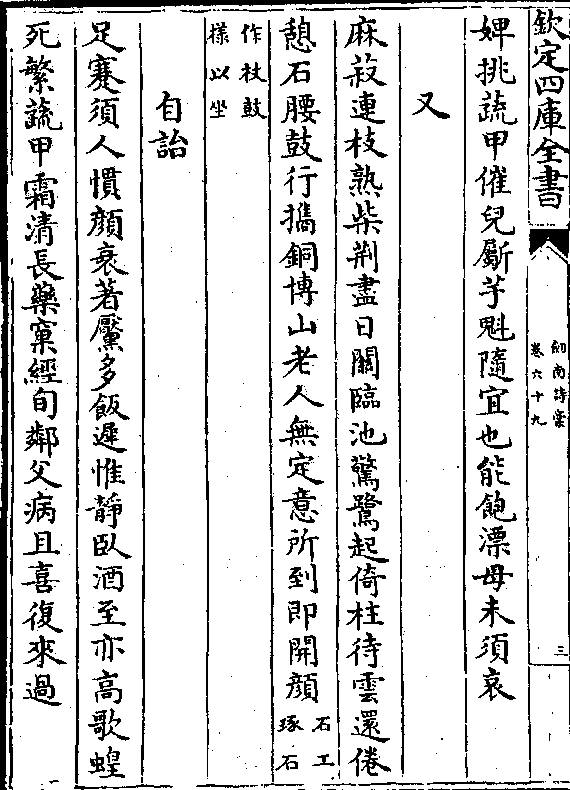 欽定四庫全書
劒南詩槀
卷六十九
三
婢挑蔬甲催兒斸芋魁隨宜也能飽漂母未須哀
又
麻菽連枝熟柴荆盡日關臨池驚鷺起倚柱待雲還倦
憩石腰鼓行攜銅博山老人無定意所到即開顔石工琢石
作杖鼓様以坐
自詒
足蹇須人慣顔衰著黶多飯遲惟靜臥酒至亦高歌蝗
死繁蔬甲霜清長藥窠經旬鄰父病且喜復來過